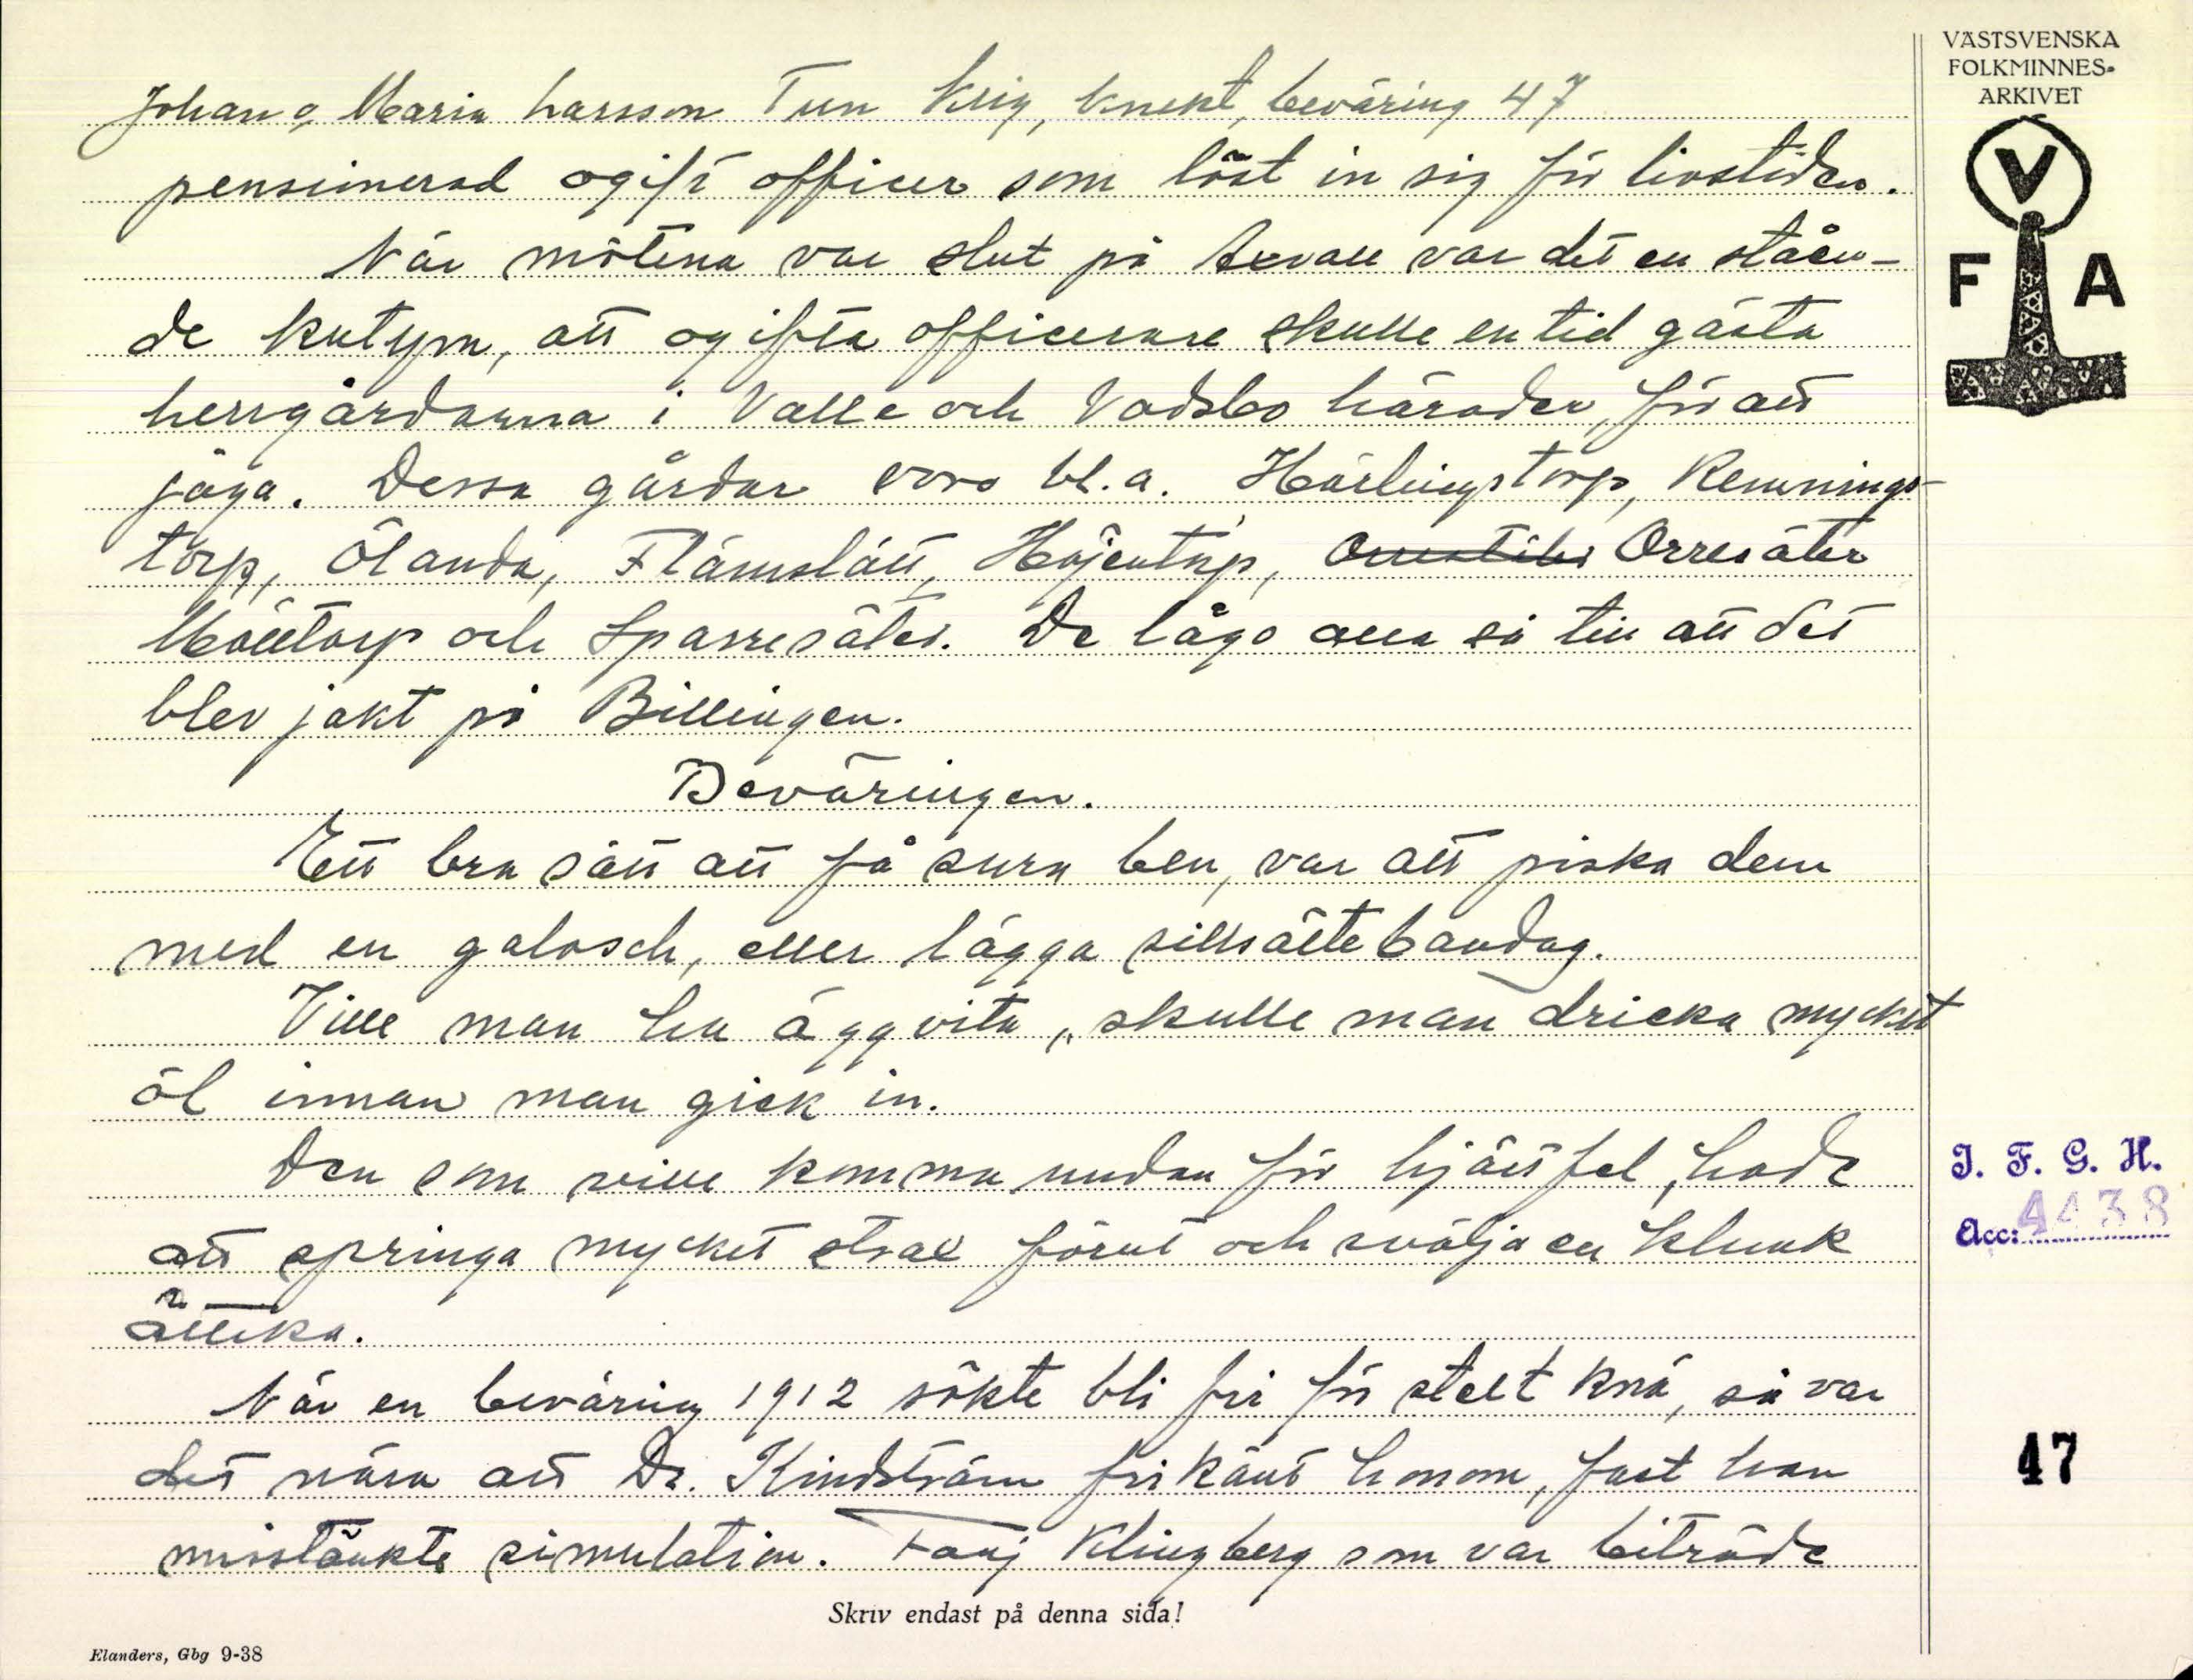 Johan o, Maria Larsson Tun Krig, knekt, beväring 47
pensinerad ogift officer som löst in sig för livstiden.
När mötena var slut på Axvall var det en ståen-
de kutym, att ogifta officerare skulle en tid gästa
herrgårdarna i Valle och Vadsbo härader, för att
jaga. Dessa gårdar voro bl.a. Härlingstorp, Remnings-
torp, Ölanda, Flämslätt, Höjentorp, Orresäter
Mölltorp och Sparresäter. De lågo alla så till att det
blev jakt på Billingen.
Beväringen.
Ett bra sätt att få sura ben, var att piska dem
med en galosch, eller lägga sillsältebandag.
Ville man ha äggvita, skulle man dricka mycket
öl innan man gick in.
Den som ville komma undan för hjärtfel, hade
att springa mycket strax förut och svälja en klunk
ättika.
När en beväring 1912 sökte bli fri för stelt knä, så var
det nära att Dr. Kindström frikänt honom, fast han
misstänkte simulation. Fanj Klingberg som var biträde
Skriv endast på denna sida!
Elanders, Gbg 9-38
VÄSTSVENSKA
FOLKMINNES-
ARKIVET
V
F A
I. F. G. H.
Acc: 4438
47